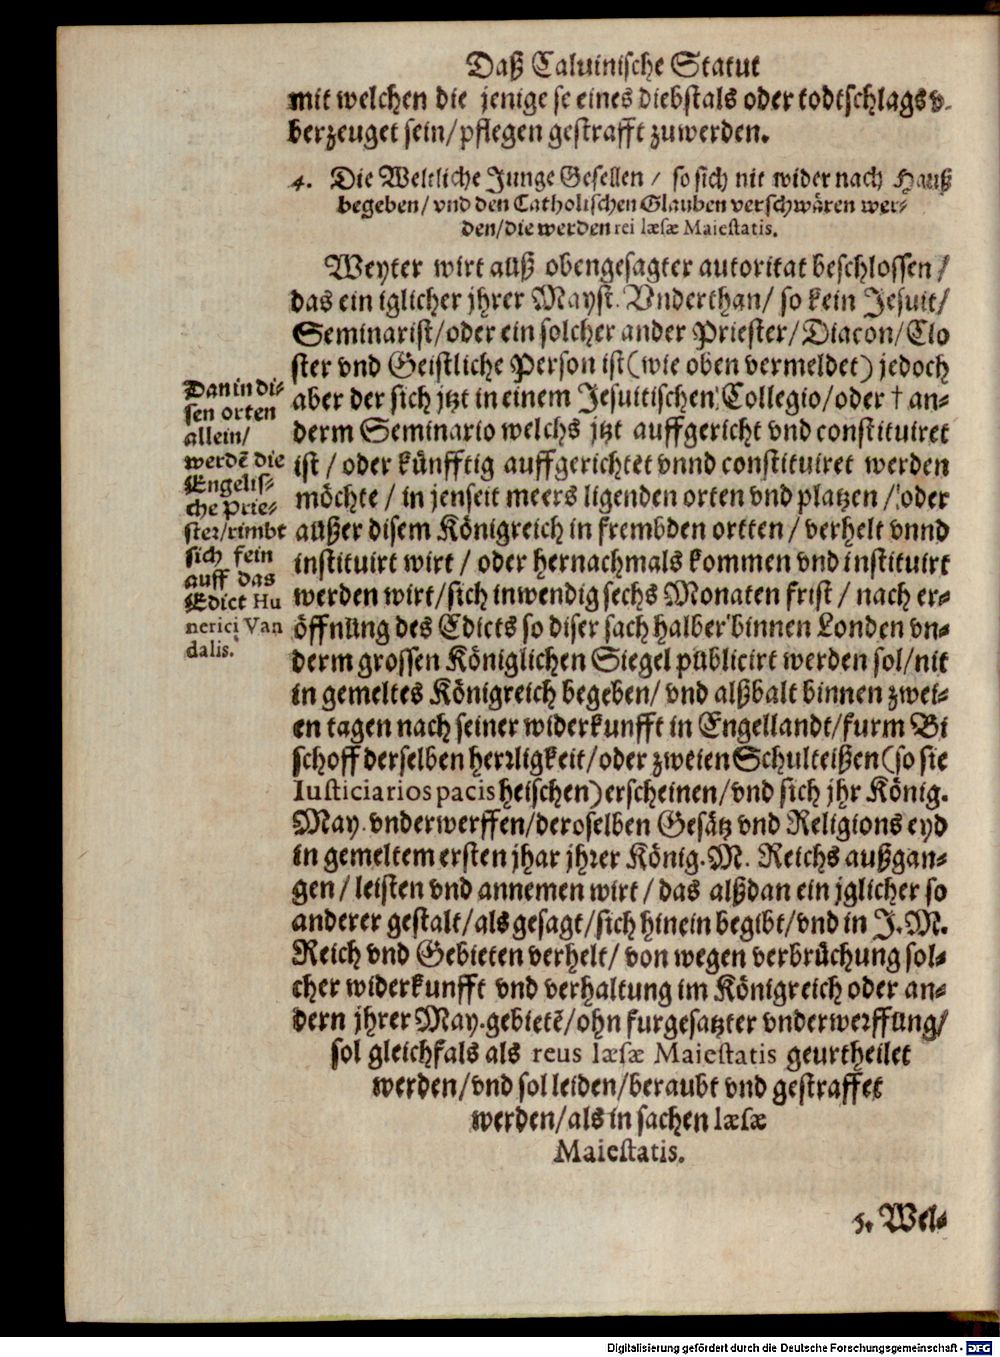 Daß Caluinische Statut
mit welchen die jenige se eines diebstals oder todtschlags v-
berzeuget sein/ pflegen gestrafft zuwerden.
4. Die Weltliche Junge Gesellen / so sich nit wider nach Hauß
begeben/ vnd den Catholischen Glauben verschwären wer-
den/ die werden rei læsæ Maiestatis.
Weyter wirt auß obengesagter autoritat beschlossen/
das ein iglicher jhrer Mayst. Vnderthan/ so kein Jesuit/
Seminarist/ oder ein solcher ander Priester/ Diacon/ Clo
ster vnd Geistliche Person ist (wie oben vermeldet) jedoch
aber der sich jtzt in einem Jesuitischen Collegio/ oder † an-
derm Seminario welchs jtzt auffgericht vnd constituiret
ist / oder künfftig auffgerichtet vnnd constituiret werden
möchte / in jenseit meers ligenden orten vnd platzen / oder
außer disem Königreich in frembden ortten / verhelt vnnd
instituirt wirt / oder hernachmals kommen vnd instituirt
werden wirt/ sich inwendig sechs Monaten frist / nach er-
öffnung des Edicts so diser sach halber binnen Londen vn-
derm grossen Königlichen Siegel publicirt werden sol/ nit
in gemeltes Königreich begeben/ vnd alßbalt binnen zwei-
en tagen nach seiner widerkunfft in Engellandt/ furm Bi
schoff derselben herrligkeit/ oder zweien Schulteißen (so sie
Iusticiarios pacis heischen) erscheinen/ vnd sich jhr König.
May. vnderwerffen/ deroselben Gesätz vnd Religions eyd
in gemeltem ersten jhar jhrer König. M. Reichs außgan-
gen / leisten vnd annemen wirt / das alßdan ein jglicher so
anderer gestalt/ als gesagt/ sich hinein begibt/ vnd in J. M.
Reich vnd Gebieten verhelt/ von wegen verbrüchung sol-
cher widerkunfft vnd verhaltung im Königreich oder an-
dern jhrer May. gebietē/ ohn furgesatzter vnderwerffung/
sol gleichfals als reus læsæ Maiestatis geurtheilet
werden/ vnd sol leiden/ beraubt vnd gestraffet
werden/ als in sachen læsæ
Maiestatis.
Dan in di-
sen orten
allein/
werdē die
Engelis-
che Prie-
ster/ rimbt
sich fein
auff das
Edict Hu
nerici Van
dalis.
5. Wel-
Digitalisierung gefördert durch die Deutsche Forschungsgemeinschaft - DFG